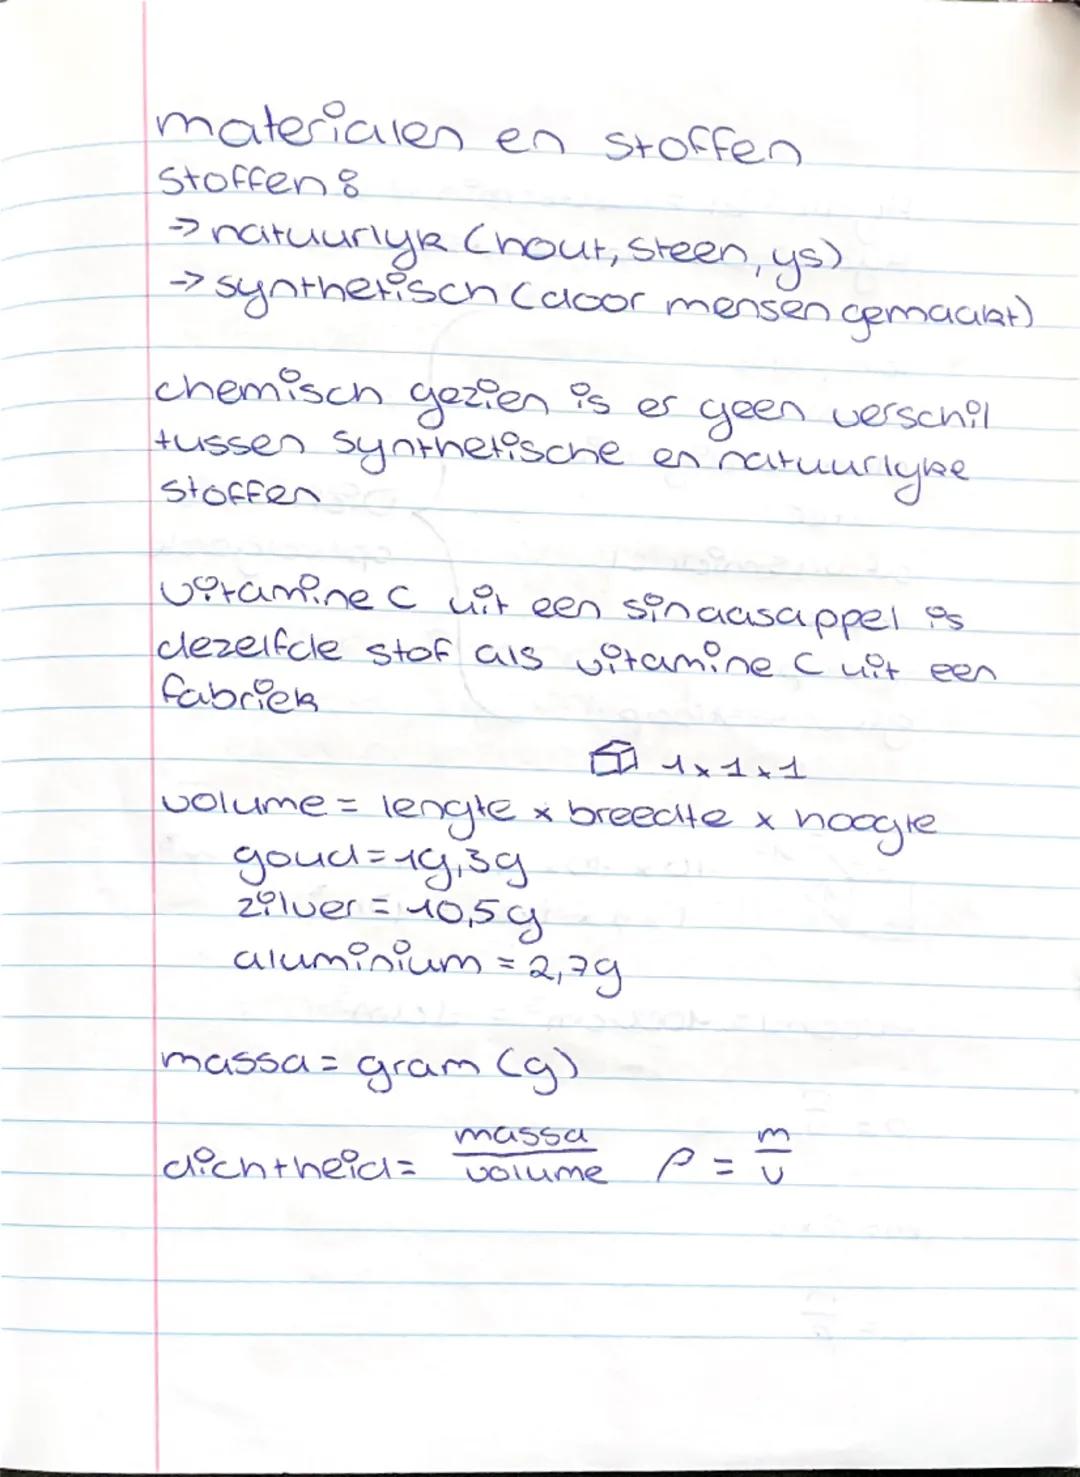 materialen en stoffen
stoffen:
→ natuurlyk (hout, steen, ys)
→ synthetisch (door mensen gemaakt)
chemisch gezien is er geen verschil
tussen synthetische en natuurlyke
stoffen
vitamine C uit een sinaasappel is
dezelfde stof als vitamine C uit een
fabriek
1x1x1
volume = lengte x breedte x hoogte
goud = 19,3g
zilver = 10,5g
aluminium = 2,7g
massa = gram (g)
dichtheid = massa/volume ρ = m/v